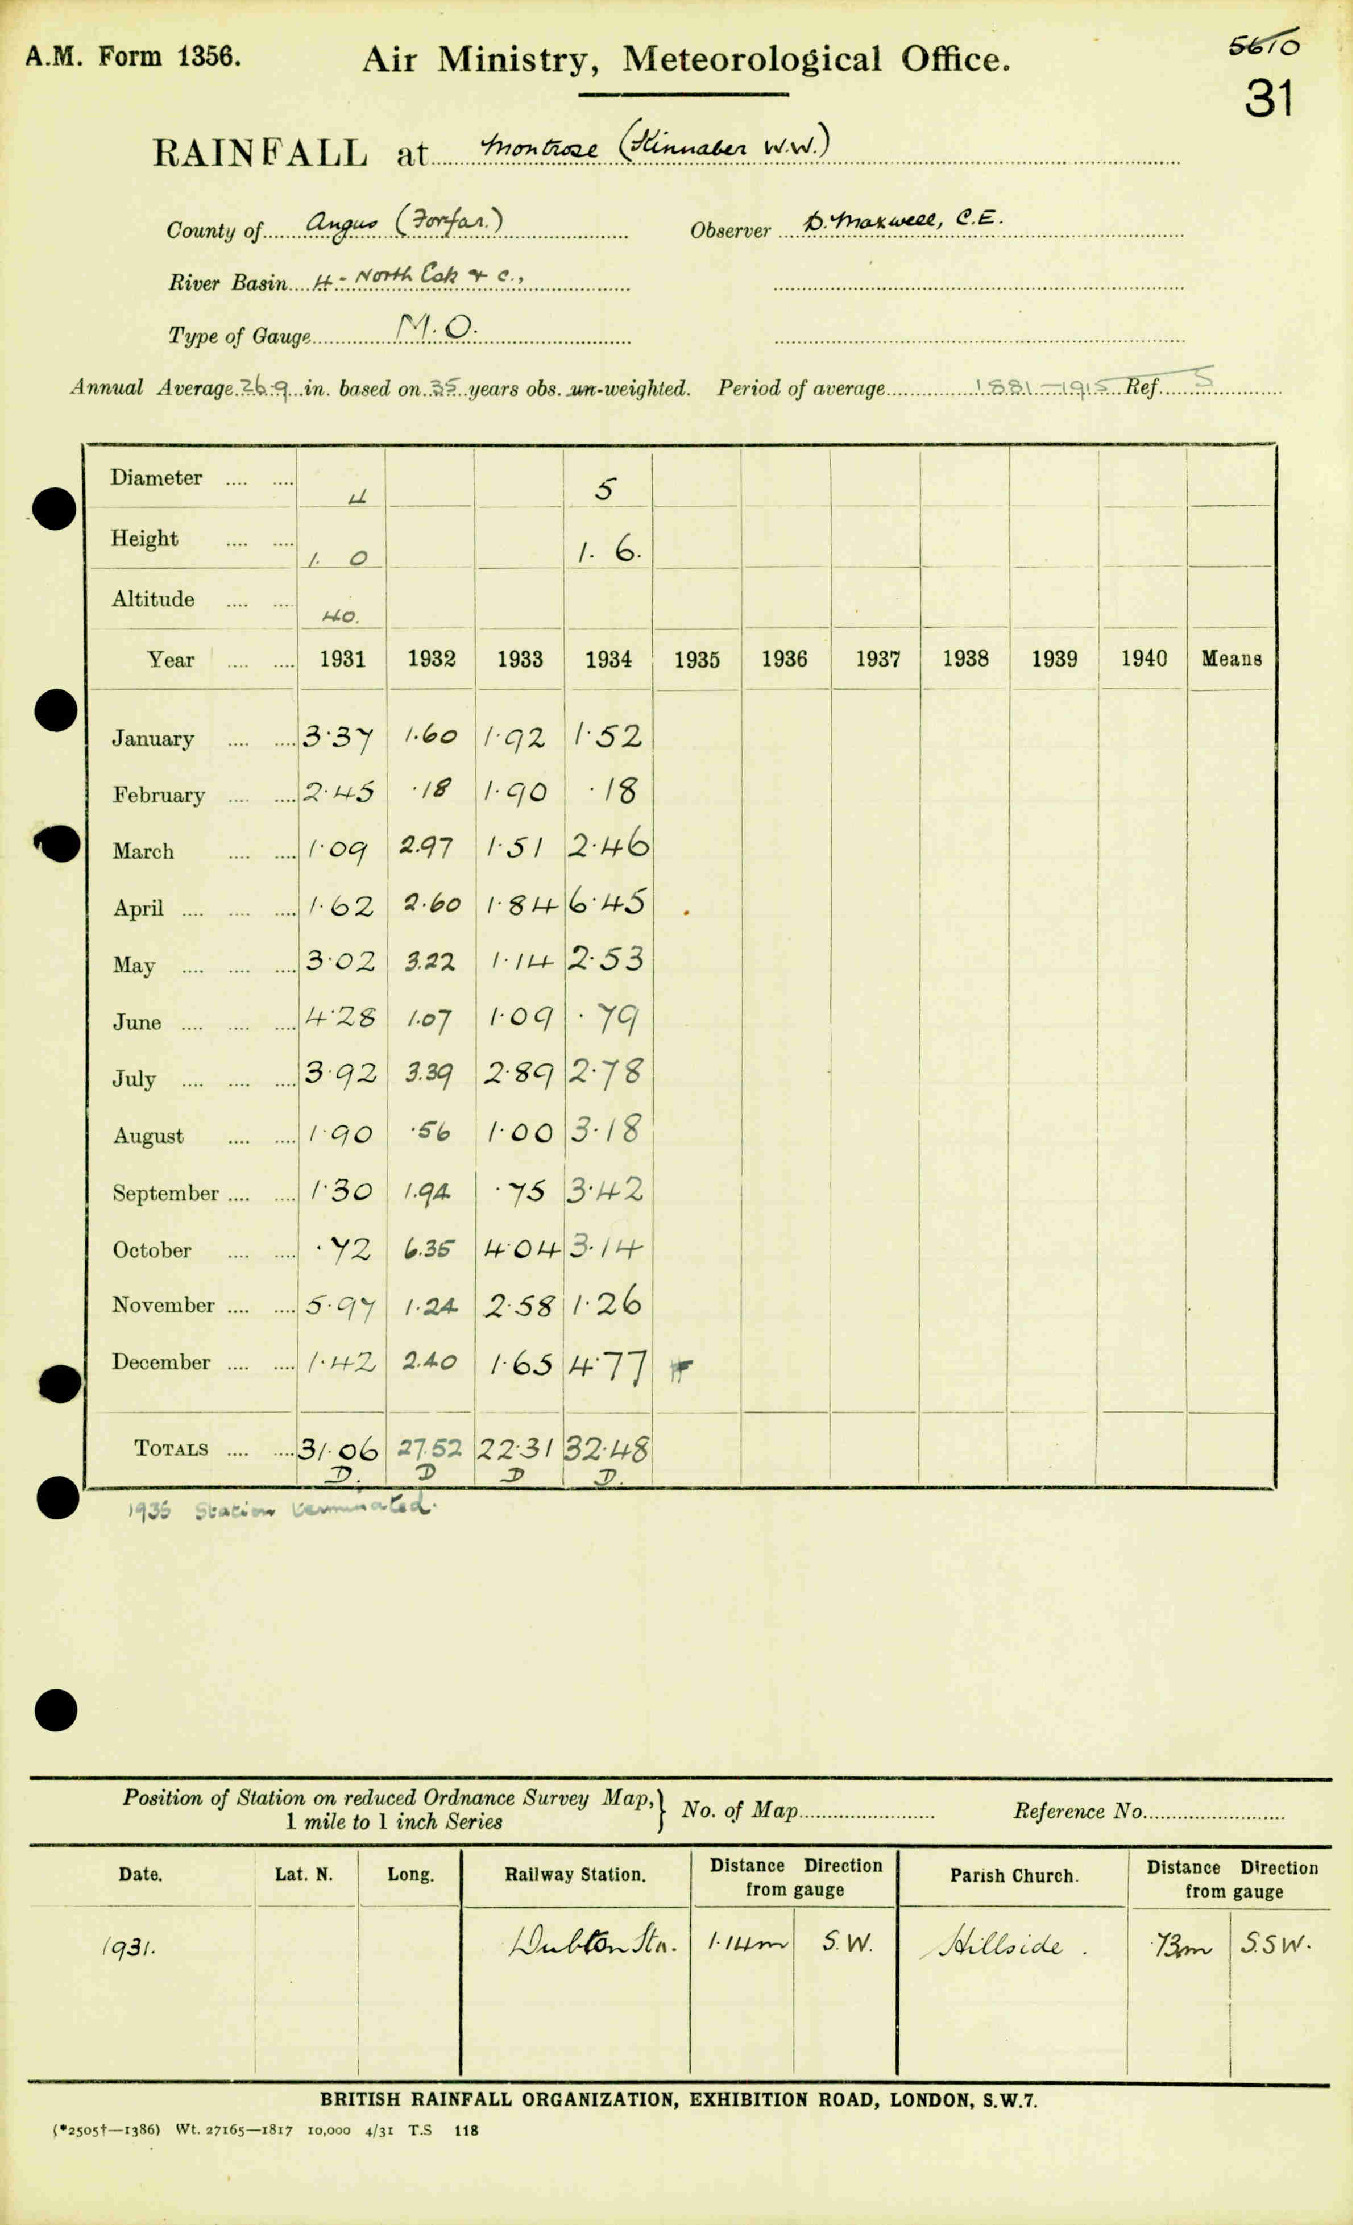 A.M. Form 1356. Air Ministry, Meteorological Office. 5610
31
RAINFALL at Montrose (Kinnaber W.W.)
County of Angus (Forfar.) Observer D. Maxwell, C.E.
River Basin 4 - North Esk & c.,
Type of Gauge M.O.
Annual Average 26.9 in. based on 35 years obs. un-weighted. Period of average 1881-1915 Ref. 5
Diameter 4 5
Height 1. 0 1. 6.
Altitude 40.
Year 1931 1932 1933 1934 1935 1936 1937 1938 1939 1940 Means
January 3.37 1.60 1.92 1.52
February 2.45 .18 1.90 .18
March 1.09 2.97 1.51 2.46
April 1.62 2.60 1.84 6.45
May 3.02 3.22 1.14 2.53
June 4.28 1.07 1.09 .79
July 3.92 3.39 2.89 2.78
August 1.90 .56 1.00 3.18
September 1.30 1.94 .75 3.42
October .72 6.35 4.04 3.14
November 5.97 1.24 2.58 1.26
December 1.42 2.40 1.65 4.77
TOTALS 31.06 27.52 22.31 32.48
D. D D D.
1935 Station terminated.
Position of Station on reduced Ordnance Survey Map, } No. of Map Reference No.
1 mile to 1 inch Series
Date. Lat. N. Long. Railway Station. Distance Direction from gauge Parish Church. Distance Direction from gauge
1931. Dubton Stn. 1.14m S.W. Hillside. .73m S.S.W.
BRITISH RAINFALL ORGANIZATION, EXHIBITION ROAD, LONDON, S.W.7.
(*2505†—1386) Wt. 27165—1817 10,000 4/31 T.S 118